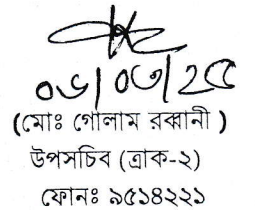 ০৬/০৩/২৫
(মোঃ গোলাম রব্বানী )
উপসচিব (ত্রাক-২)
ফোনঃ ৯৫১৪২২১